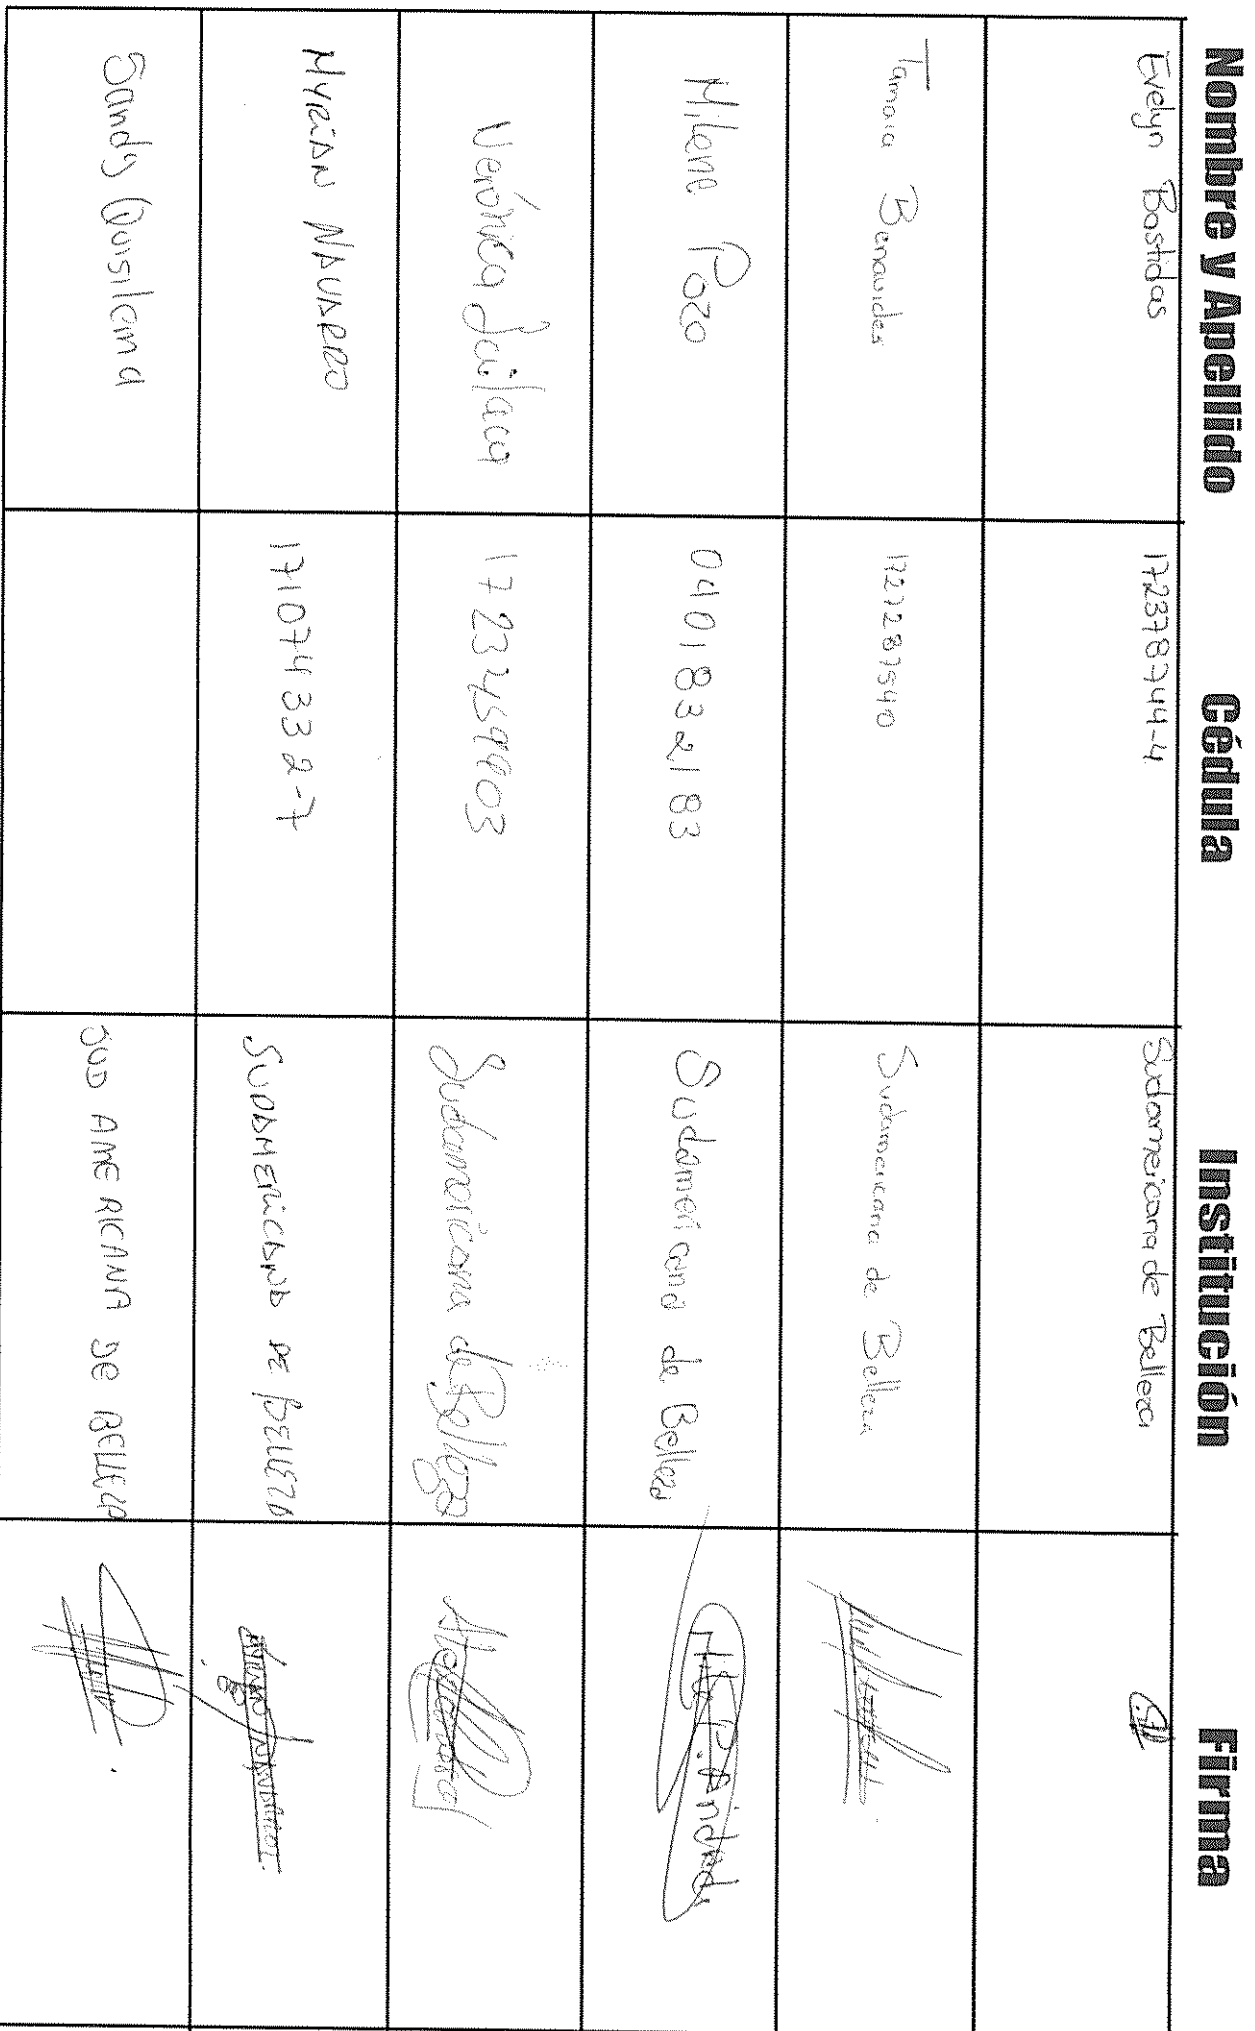 Nombre y Apellido Cédula Institución Firma
Evelyn Bastidas 172378744-4 Sudamericana de Belleza
Tamara Benavides Sudamericana de Belleza
Milena Pozo 0401832183 Sudamericana de Belleza
Verónica Sudamericana de Belleza
MYRIAN NAVARRO 171074332-7 SUDAMERICANA DE BELLEZA
Sandy Quisilema SUD AMERICANA DE BELLEZA